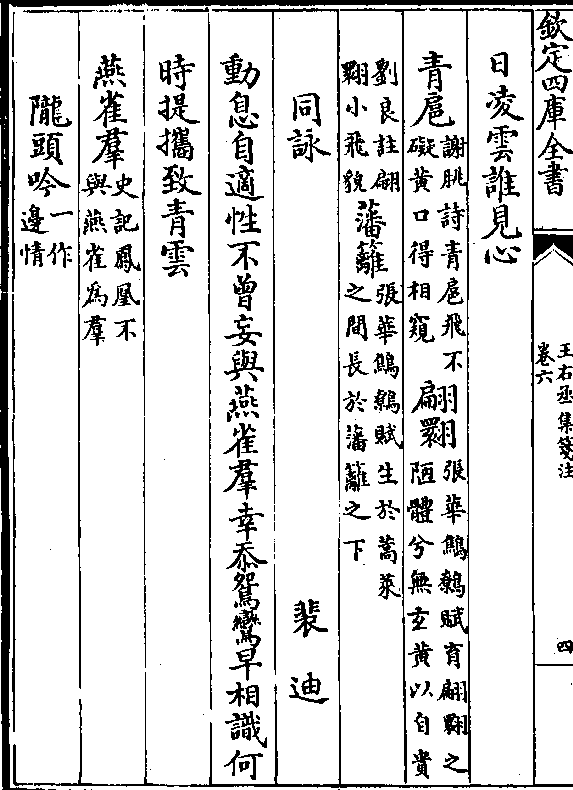 欽定四庫全書
王右丞集箋注
卷六
四
日凌雲誰見心
青扈謝朓詩青扈飛不礙黃口得相窺翩翾張華鷦鷯賦育翩翾之陋體兮無玄黃以自貴
劉良註翩翾小飛貌藩籬張華鷦鷯賦生於蒿萊之間長於藩籬之下
同詠　裴迪
動息自適性不曾妄與燕雀羣幸忝鴛鸞早相識何
時提攜致青雲
燕雀羣史記鳳凰不與燕雀爲羣
隴頭吟一作邊情